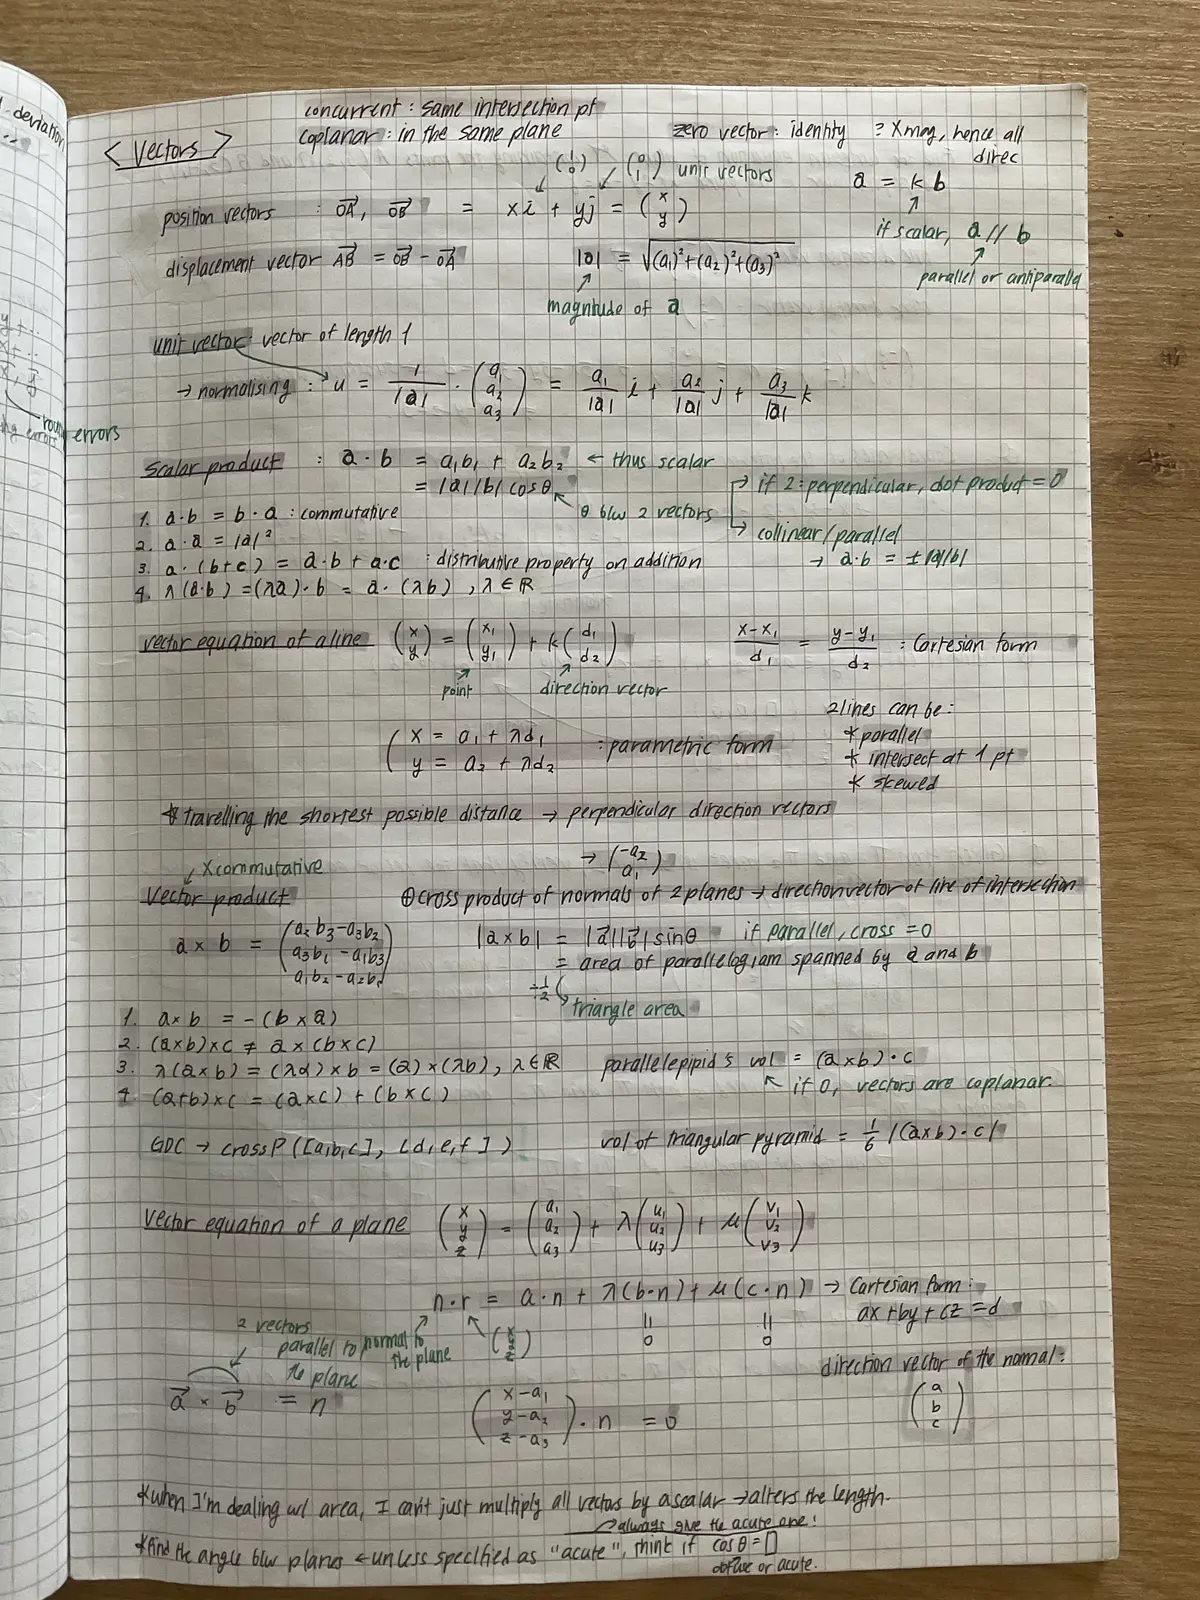 concurrent : same intersection pt
< Vectors >
coplanar : in the same plane
zero vector : identity ? X mag, hence all direc
(1 0) (0 1) unit vectors
position vectors : OA, OB = xi + yj = (x y)
a = k b
if scalar, a // b
parallel or antiparallel
displacement vector AB = OB - OA
|a| = √(a₁)²+(a₂)²+(a₃)²
magnitude of a
unit vector : vector of length 1
→ normalising : u = 1/|a| · (a₁ a₂ a₃) = a₁/|a| i + a₂/|a| j + a₃/|a| k
scalar product : a · b = a₁b₁ + a₂b₂ ← thus scalar
= |a||b| cosθ
θ b/w 2 vectors
→ if 2 : perpendicular, dot product = 0
→ collinear/parallel
→ a·b = ±|a||b|
1. a·b = b·a : commutative
2. a·a = |a|²
3. a·(b+c) = a·b + a·c : distributive property on addition
4. λ(a·b) = (λa)·b = a·(λb), λ∈ℝ
vector equation of a line (x y) = (x₁ y₁) + k(d₁ d₂)
point
direction vector
x-x₁/d₁ = y-y₁/d₂ : Cartesian form
( x = a₁ + λd₁
y = a₂ + λd₂
: parametric form
2 lines can be :
* parallel
* intersect at 1 pt
* skewed
* travelling the shortest possible distance → perpendicular direction vectors
→ (-a₂ a₁)
X commutative
Vector product
⊕ cross product of normals of 2 planes → direction vector of line of intersection
a × b = (a₂b₃-a₃b₂ a₃b₁-a₁b₃ a₁b₂-a₂b₁)
|a×b| = |a||b| sinθ if parallel, cross = 0
= area of parallelogram spanned by a and b
÷ 1/2
triangle area
1. a×b = -(b×a)
2. (a×b)×c ≠ a×(b×c)
3. λ(a×b) = (λa)×b = (a)×(λb), λ∈ℝ
4. (a+b)×c = (a×c) + (b×c)
parallelepipid's vol = (a×b)·c
if 0, vectors are coplanar.
GDC → crossP([a,b,c], [d,e,f])
vol of triangular pyramid = 1/6 |(a×b)·c|
vector equation of a plane (x y z) = (a₁ a₂ a₃) + λ(u₁ u₂ u₃) + μ(v₁ v₂ v₃)
n·r = a·n + λ(b·n) + μ(c·n) → Cartesian form :
ax + by + cz = d
normal to the plane
(x y z)
= 0
= 0
2 vectors parallel to the plane
a × b = n
direction vector of the normal :
(a b c)
(x-a₁ y-a₂ z-a₃)· n = 0
* when I'm dealing w/ area, I can't just multiply all vectors by a scalar → alters the length.
→ always give the acute one!
* Find the angle b/w planes ← unless specified as "acute", think if cosθ = []
obtuse or acute.
. deviation
errors